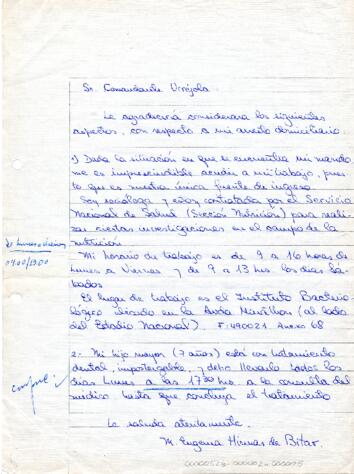 Sr. Comandante Urrijola.
Le agradecería considerara los siguientes
aspectos, con respecto a mi arresto domiciliario
1) Dada la situación en que se encuentra mi marido
me es imprescindible acudir a mi trabajo, pues-
to que es nuestra única fuente de ingreso
Soy socióloga y estoy contratada por el Servicio
Nacional de Salud (Sección Nutrición) para reali-
zar ciertas investigaciones en el campo de la
nutrición
Mi horario de trabajo es de 9 a 16 horas de
Lunes a Viernes y de 9 a 13 hrs. los días Sá-
bados
de Lunes a Viernes
09:00/13:00
El lugar de trabajo es el Instituto Bacterio-
lógico ubicado en la Avda Marathon (al lado
del Estadio Nacional). F: 490021 Anexo 68
2.- Mi hijo mayor (7 años) está con tratamiento
dental, impostergable, y debo llevarlo todos los
días Lunes a las 17:30 hrs. a la consulta del
médico hasta que concluya el tratamiento
Le saluda atentamente.
M. Eugenia Hirmas de Bitar.